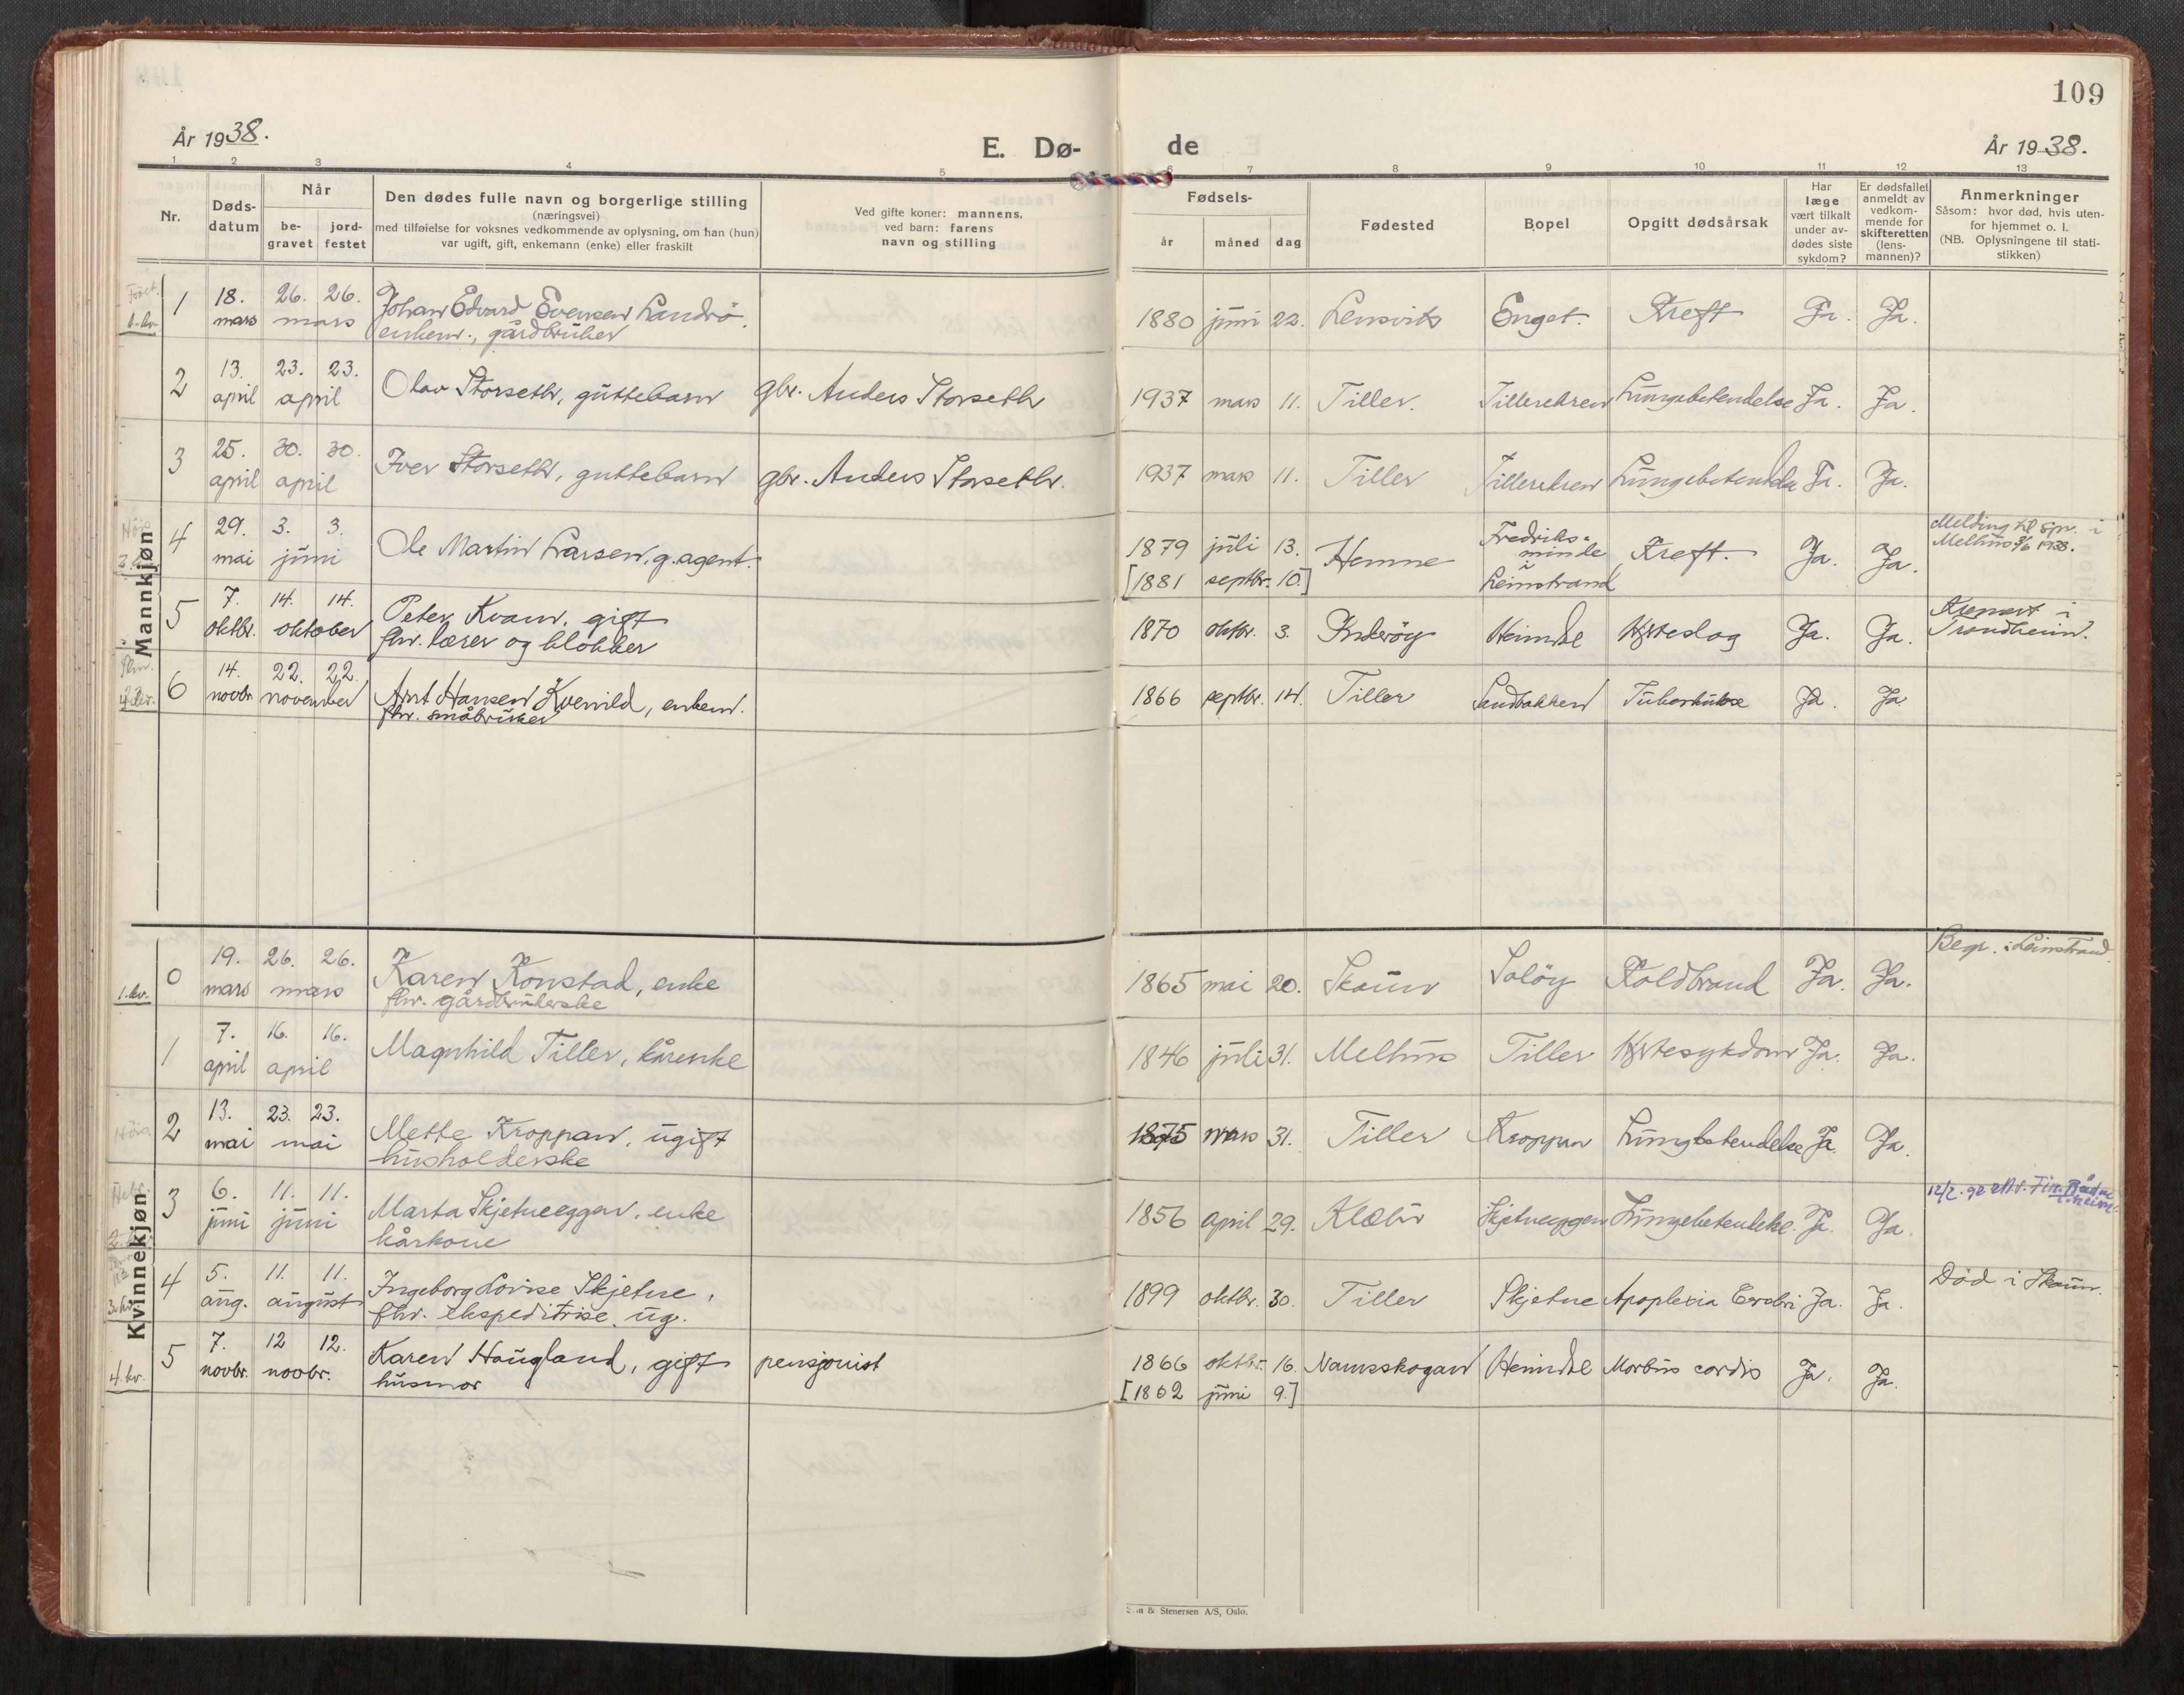 109
År 1938.
E. Dø-
de
År 1938.
1 2 3 4 5 6 7 8 9 10 11 12 13
Nr.
Døds-
datum
Når
be-
gravet
jord-
festet
Den dødes fulle navn og borgerlige stilling
(næringsvei)
med tilføielse for voksnes vedkommende av oplysning, om han (hun)
var ugift, gift, enkemann (enke) eller fraskilt
Ved gifte koner: mannens,
ved barn: farens
navn og stilling
Fødsels-
år
måned
dag
Fødested
Bopel
Opgitt dødsårsak
Har
læge
vært tilkalt
under av-
dødes siste
sykdom?
Er dødsfallet
anmeldt av
vedkom-
mende for
skifteretten
(lens-
mannen)?
Anmerkninger
Såsom: hvor død, hvis uten-
for hjemmet o. l.
(NB. Oplysningene til stati-
stikken)
Mannkjøn
1.kv.
1 18. 26. 26. Johan Edvard Evensen Landrö, 1880 juni 22. Lensvik Enget. Kreft Ja. Ja.
mars mars enkem., gårdbruker
2 13. 23. 23. Olav Storseth, guttebarn gbr. Anders Storseth 1937 mars 11. Tiller. Tillerekren Lungebetendelse Ja. Ja.
april april
3 25. 30. 30. Iver Storseth, guttebarn gbr. Anders Storseth. 1937 mars 11. Tiller Tillerekren Lungebetendelse Ja. Ja.
april april
4 29. 3. 3. Ole Martin Larsen, g. agent. 1879 juli 13. Hemne Fredriks-
minde
i
Leinstrand Kreft. Ja. Ja. Melding til spr. i
Melhus 3/6 1938.
mai juni [1881 septbr. 10.]
5 7. 14. 14. Peter Kvam, gift 1870 oktbr. 3. Inderöy Heimdal Hjerteslag Ja. Ja. Kremert i
Trondheim.
oktbr. oktober fhv. lærer og klokker
4.kv.
6 14. 22. 22. Arnt Hansen Kvenild, enkem. 1866 septbr. 14. Tiller Sandbakken Tuberkulose Ja. Ja
novbr. november fhv. småbruker
Kvinnekjøn
1.kv.
0 19. 26. 26. Karen Konstad, enke 1865 mai 20. Skaun Solöy Koldbrand Ja. Ja. Begr. i Leinstrand.
mars mars fhv. gårdbrukerske
1 7. 16. 16. Magnhild Tiller, kårenke 1846 juli 31. Melhus Tiller Hjertesykdom Ja. Ja.
april april
2 13. 23. 23. Mette Kroppan, ugift 1875 mars 31. Tiller Kroppan Lungebetendelse Ja. Ja.
mai mai husholderske
3 6. 11. 11. Marta Skjetneeggen, enke 1856 april 29. Klæbu Skjetneeggen Lungebetendelse. Ja. Ja.
juni juni kårkone
3.kv.
4 5. 11. 11. Ingeborg Lovise Skjetne, 1899 oktbr. 30. Tiller Skjetne Apoplexia Ja. Ja. Död i Skaun.
aug. august fhv. ekspeditrise, ug.
4.kv.
5 7. 12 12. Karen Haugland, gift pensjonist 1866 oktbr. 16. Namsskogan Heimdal Morbus cordis Ja. Ja.
novbr. novbr. husmor [1862 juni 9.]
& Stenersen A/S, Oslo.